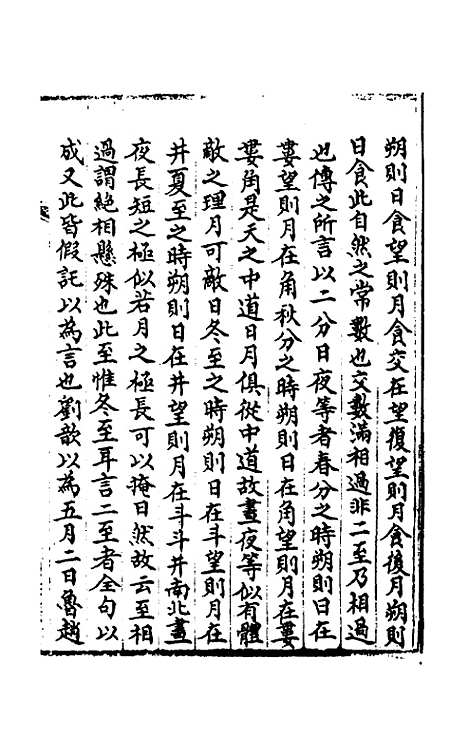 朔則日食望則月食交在望復望則月食後月朔則
日食此自然之常數也交數滿相過非二至乃相過
也傳之所言以二分日夜等者春分之時朔則日在
婁望則月在角秋分之時朔則日在角望則月在婁
婁角是天之中道日月俱從中道故晝夜等似有體
敵之理月可敵日冬至之時朔則日在斗望則月在
井夏至之時朔則日在井望則月在斗斗井南北晝
夜長短之極似若月之極長可以掩日然故云至相
過謂絶相懸殊也此至惟冬至耳言二至者全句以
成又此皆假託以為言也劉歆以為五月二日魯趙